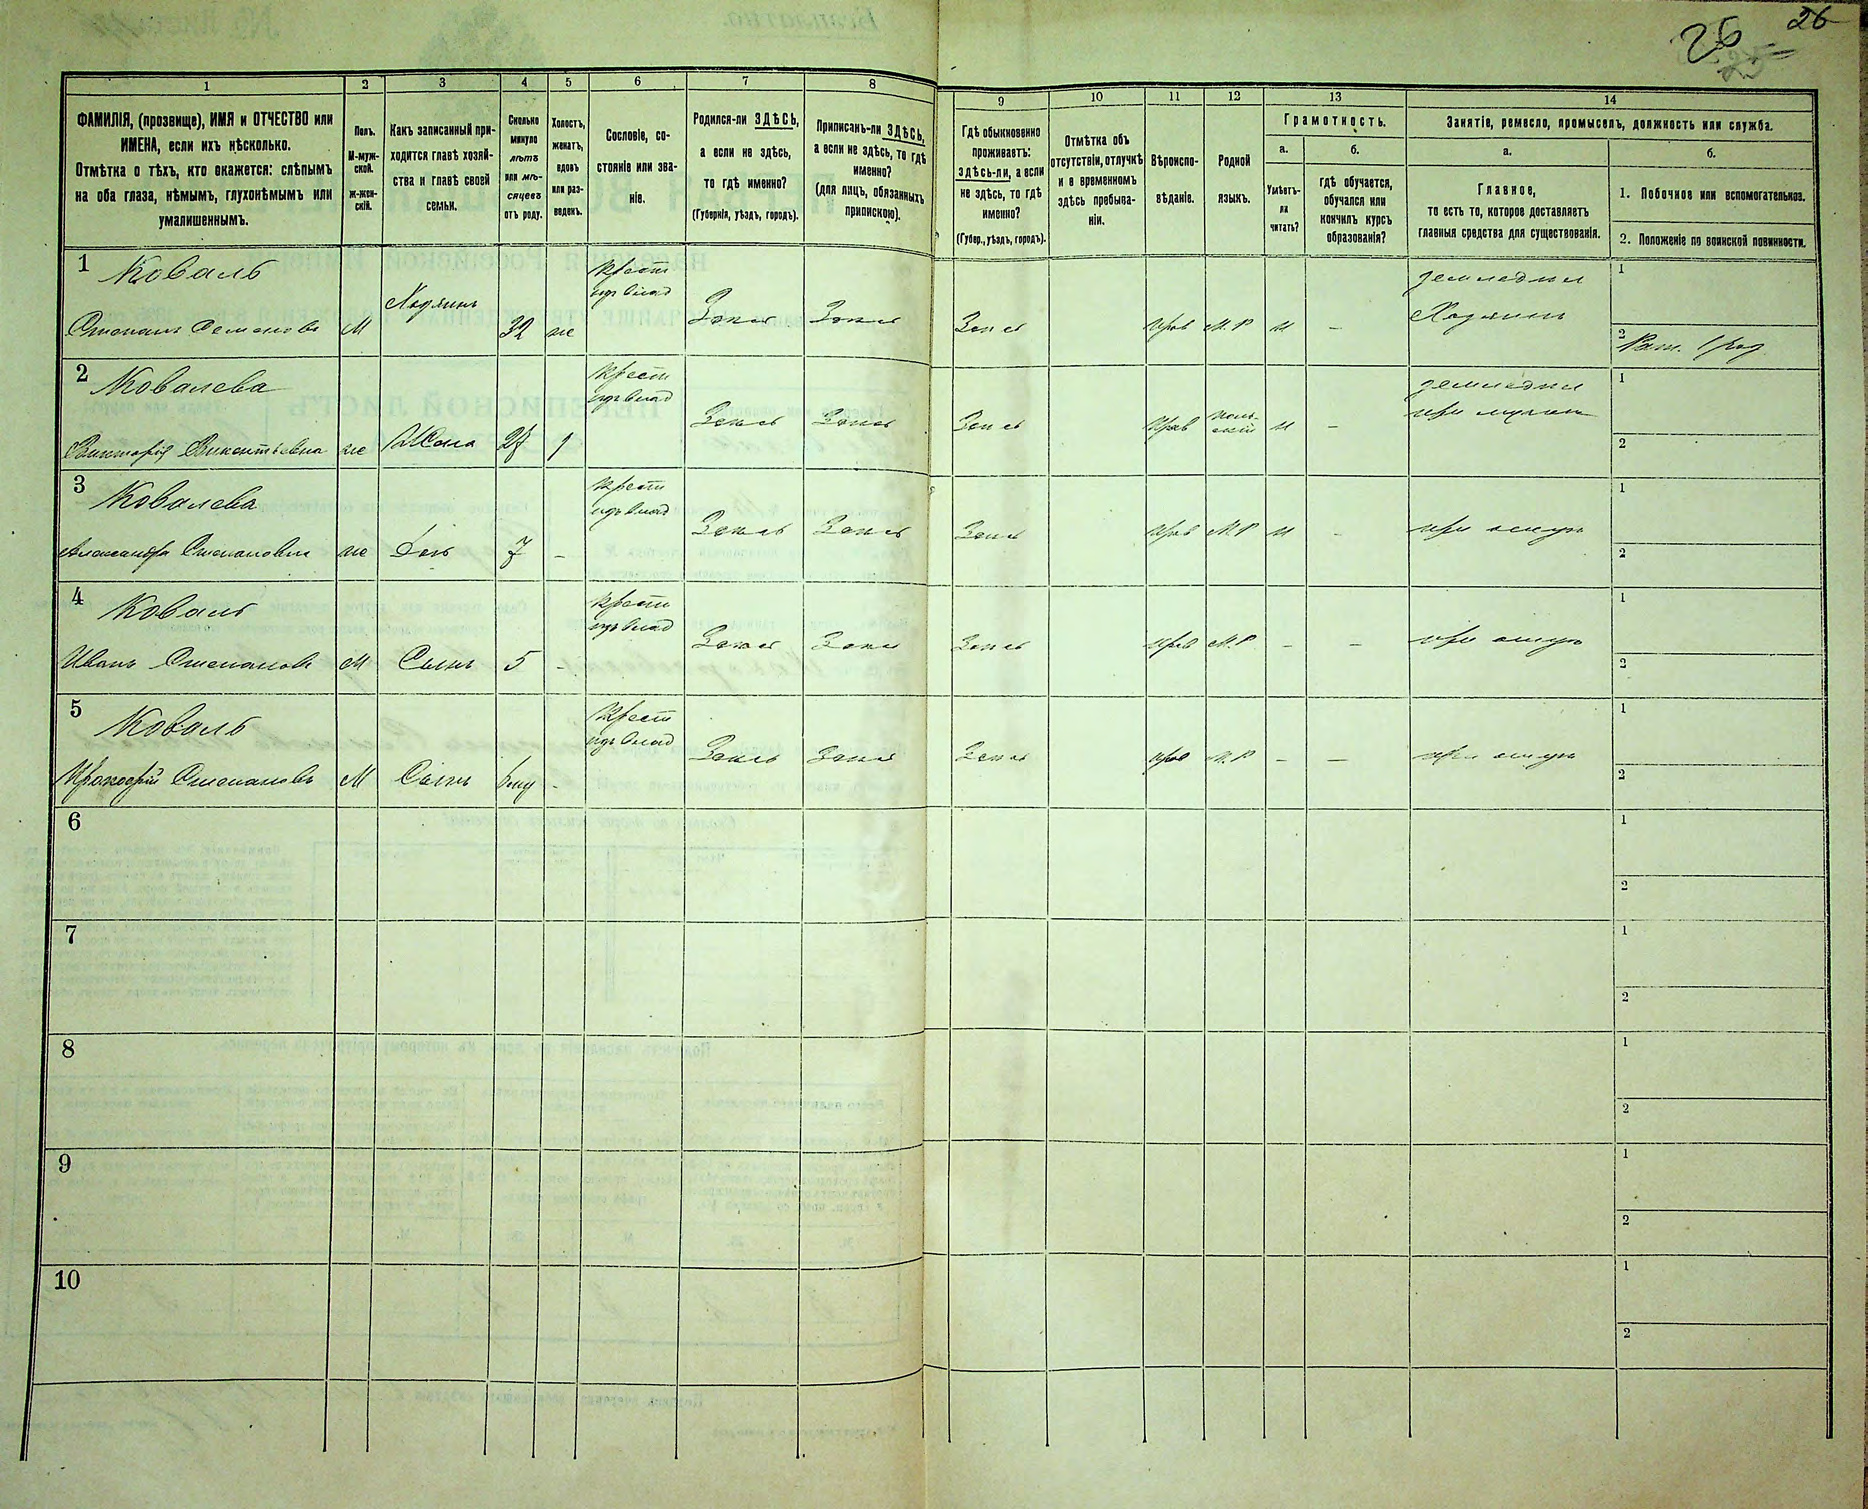 26
26
1
2
3
4
5
6
7
8
9
10
11
12
13
14
ФАМИЛІЯ, (прозвище), ИМЯ и ОТЧЕСТВО или
ИМЕНА, если ихъ нѣсколько.
Отмѣтка о тѣхъ, кто окажется: слѣпымъ
на оба глаза, нѣмымъ, глухонѣмымъ или
умалишеннымъ.
Полъ.
М-муж-
ской.
ж-жен-
скій.
Какъ записанный при-
ходится главѣ хозяй-
ства и главѣ своей
семьи.
Сколько
минуло
лѣтъ
или мѣ-
сяцевъ
отъ роду.
Холостъ,
женатъ,
вдовъ
или раз-
веденъ.
Сословіе, со-
стояніе или зва-
ніе.
Родился-ли ЗДѢСЬ,
а если не здѣсь,
то гдѣ именно?
(Губернія, уѣздъ, городъ).
Приписанъ-ли ЗДѢСЬ,
а если не здѣсь, то гдѣ
именно?
(для лицъ, обязанныхъ
припискою).
Гдѣ обыкновенно
проживаетъ:
здѣсь-ли, а если
не здѣсь, то гдѣ
именно?
(Губер., уѣздъ, городъ).
Отмѣтка объ
отсутствіи, отлучкѣ
и о временномъ
здѣсь пребыва-
ніи.
Вѣроиспо-
вѣданіе.
Родной
языкъ.
Грамотность.
а.
Умѣетъ-
ли
читать?
б.
гдѣ обучается,
обучался или
кончилъ курсъ
образованія?
Занятіе, ремесло, промыселъ, должность или служба.
а.
Главное,
то есть то, которое доставляетъ
главныя средства для существованія.
б.
1. Побочное или вспомогательное.
2. Положеніе по воинской повинности.
1 Коваль
Степанъ Семеновъ М Хозяинъ 32 же Крест изъ влад Здѣсь Здѣсь Здѣсь Прав М.Р н — земледѣл Хозяинъ 1 2
2 Ковалева
Викторія Викентьевна же Жена 27 Крест изъ влад Здѣсь Здѣсь Здѣсь Прав поль-скій н — земледѣл при мужѣ 1 2
3 Ковалева
Александра Степановна же Дочь 7 - Крест изъ влад Здѣсь Здѣсь Здѣсь Прав М.Р н - при отцѣ 1 2
4 Коваль
Иванъ Степановъ М Сынъ 5 - Крест изъ влад Здѣсь Здѣсь Здѣсь Прав М.Р. - — при отцѣ 1 2
5 Коваль
Прокофій Степановъ М Сынъ - Крест изъ влад Здѣсь Здѣсь Здѣсь Прав М.Р - — при отцѣ 1 2
6 1 2
7 1 2
8 1 2
9 1 2
10 1 2